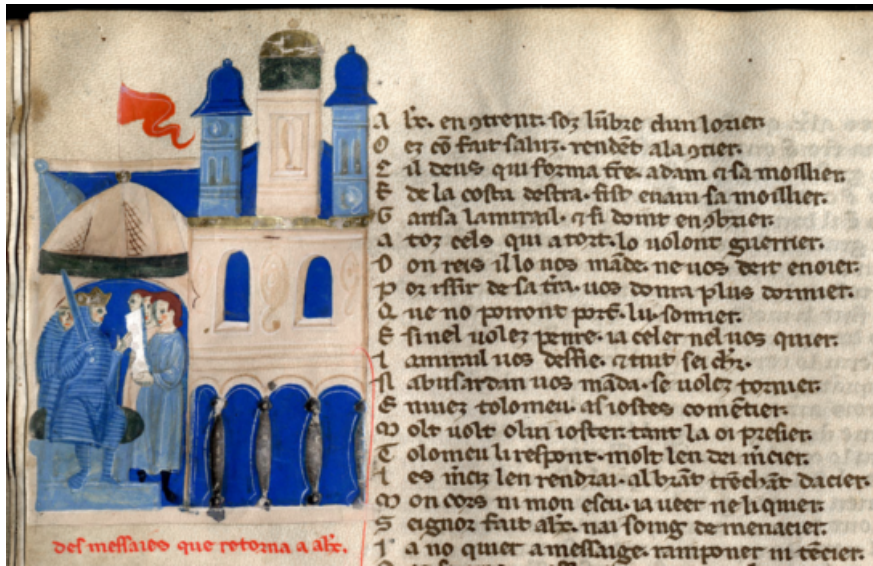 A lix. en ꝯtrent. soz lũbre dun lorier.
O ez cõ fait saluz. rendẽt ala ꝯtier.
C il deus qui forma tr̃e. adam ⁊ sa moillier.
E de la costa destra. fist euam sa moillier.
G arisa lamirail. ⁊ si doint enꝯbrier.
A toz cels qui a tort. lo uolont guerrier.
D on reis il lo uos mãde. ne uos deit enoier.
P or issir de sa tr̃a. uos donra plus dormier.
Q ue no poiront port̃. lui somier.
E si nel uolez penre. ia celer nel uos quier.
L amirail uos desfie. ⁊ tuit sei chr̃.
N abusardan uos mãda. se uolez tornier.
E nuiez tolomeu. as iostes comẽcier.
M olt uolt o lui ioster. tant la oi presier.
T olomeu li respont. molt len dei m̃cier.
L es m̃ciz len rendrai. al brãt trẽchãt dacier.
M on cors ni mon escu. ia ueer ne li quier.
S eignor fait alix̃. nai soing de menacier.
I a no quier a messaige. ramponer ni tẽcier.
des messaies que retorna a alix̃.